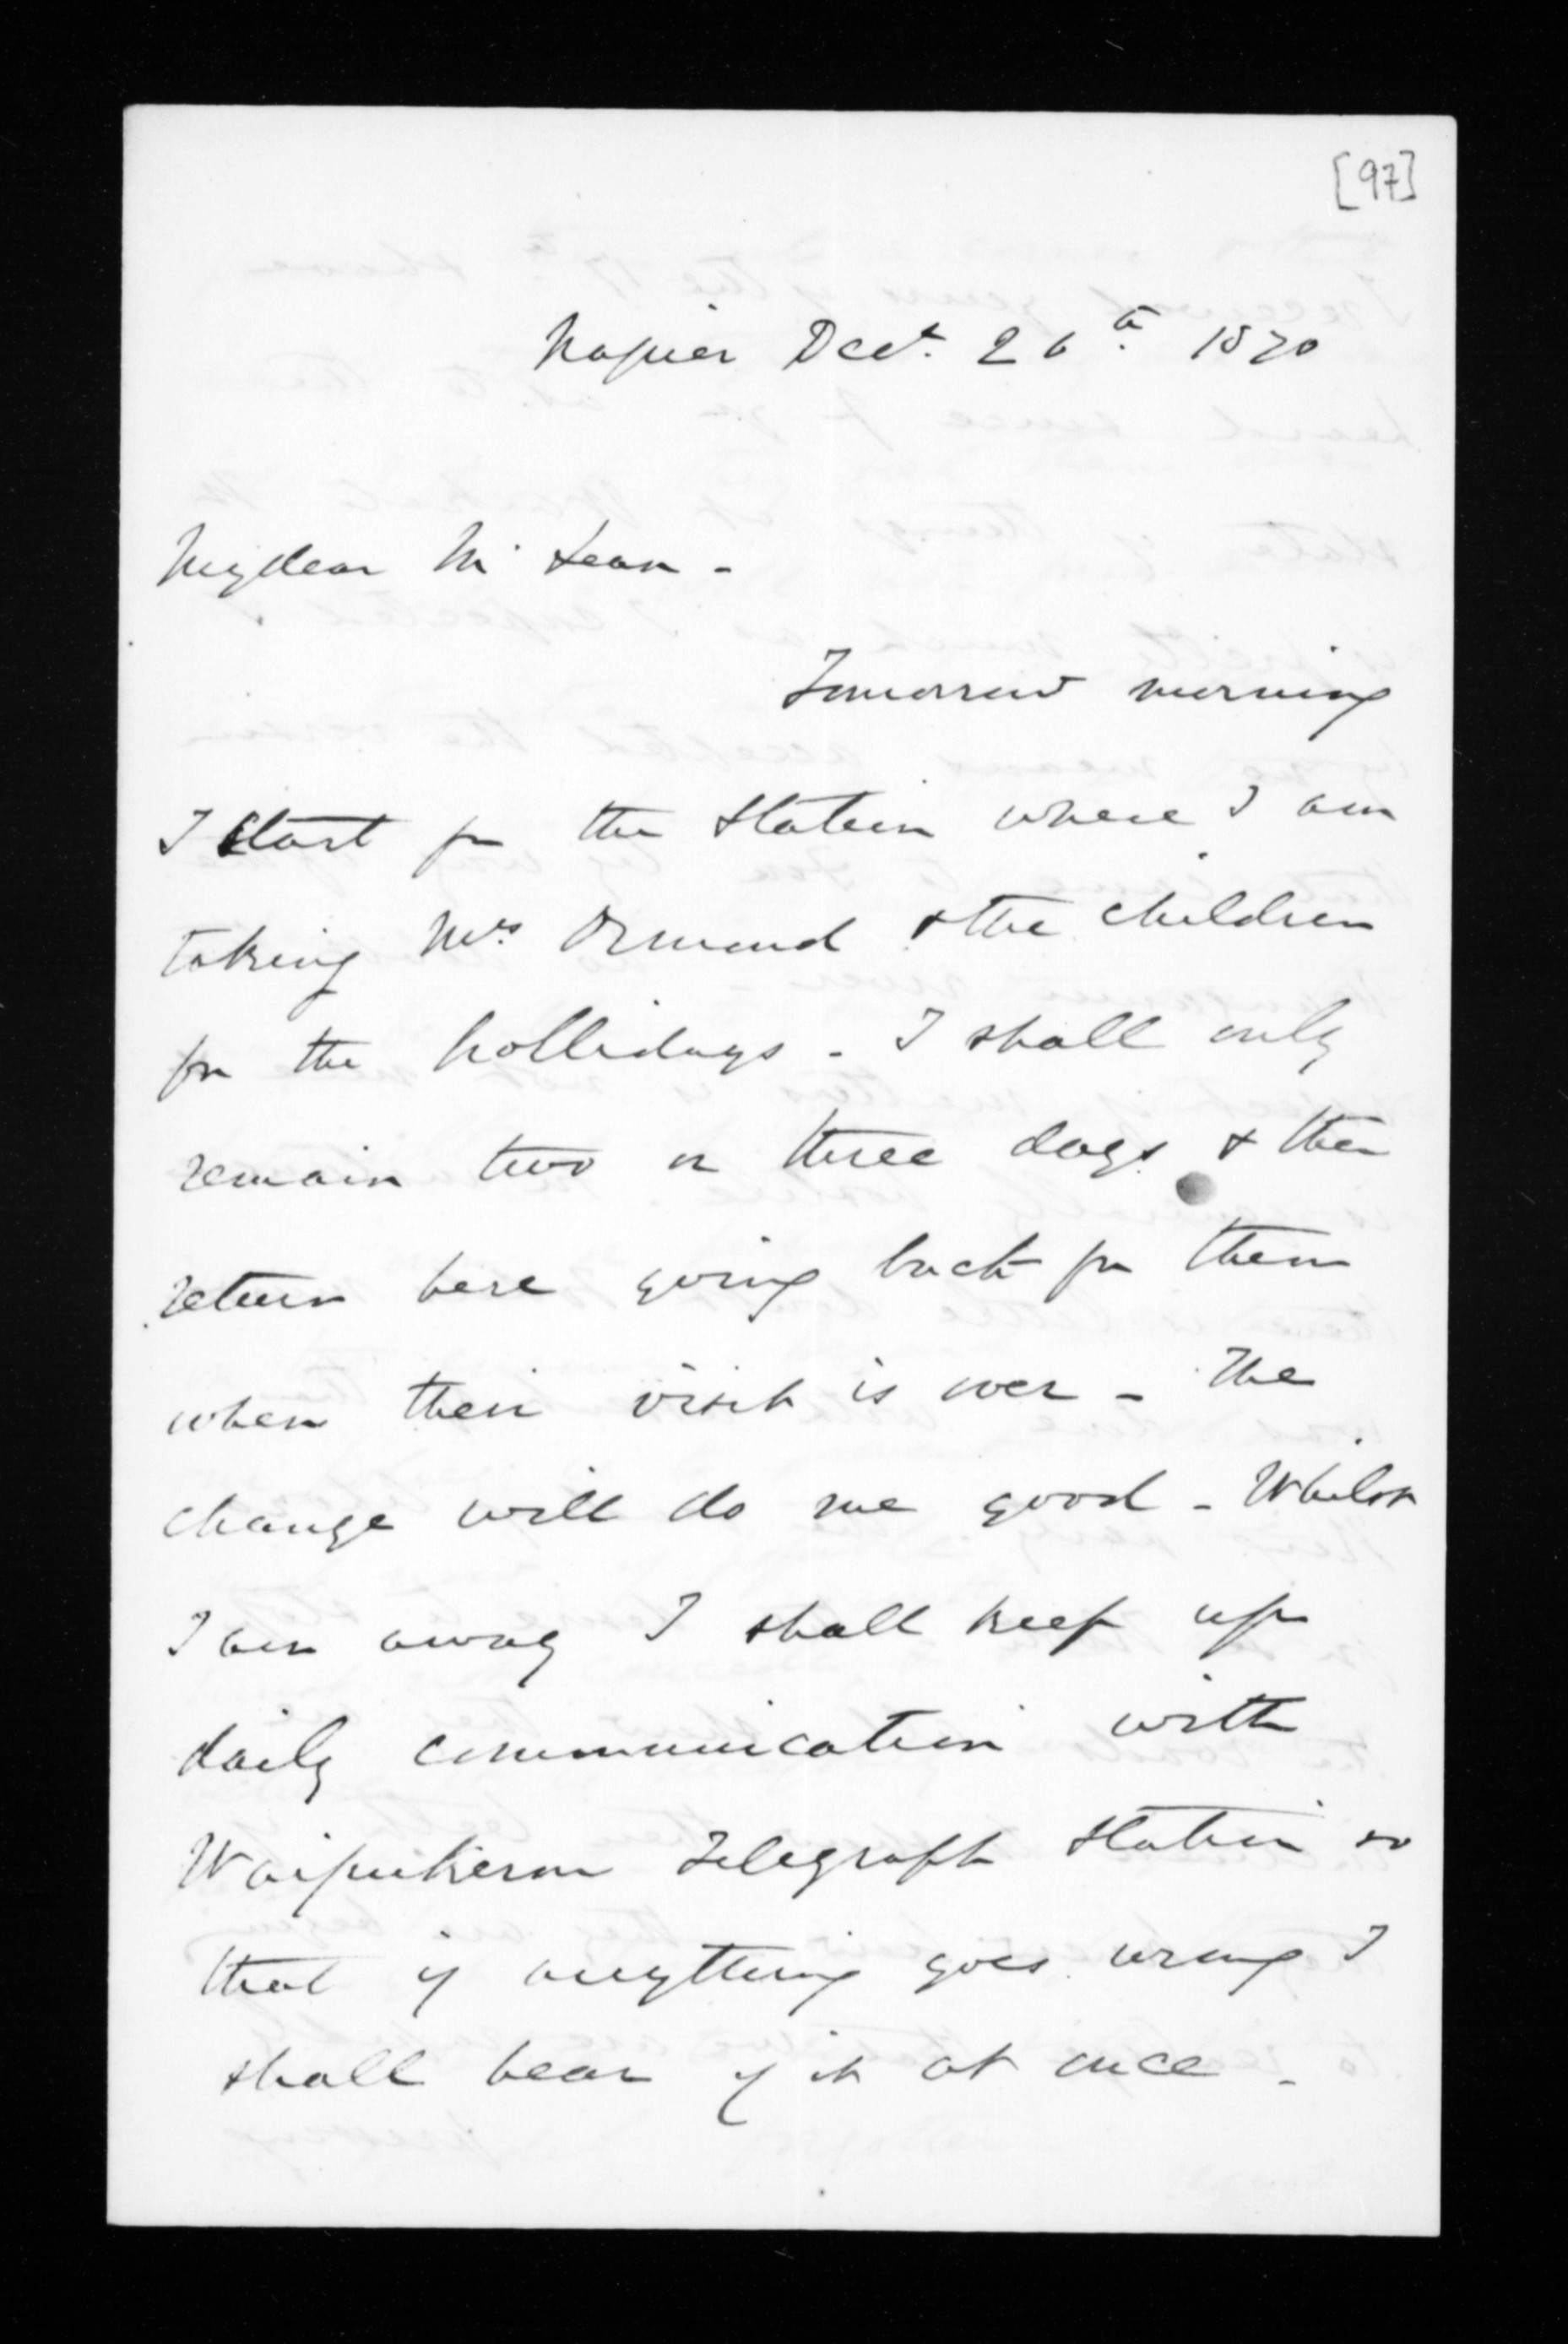 [97]
Napier Decr. 26th. 1870
My dear McLean -
Tomorrow morning
I start for the station where I am
taking Mrs Ormond & the children
for the hollidays - I shall only
remain two or three days & then
return here going back for them
when their visit is over - The
change will do me good - Whilst
I am away I shall keep up
daily communication with
Waipukerau Telegraph station so
that if anything goes wrong I
shall hear of it at once -